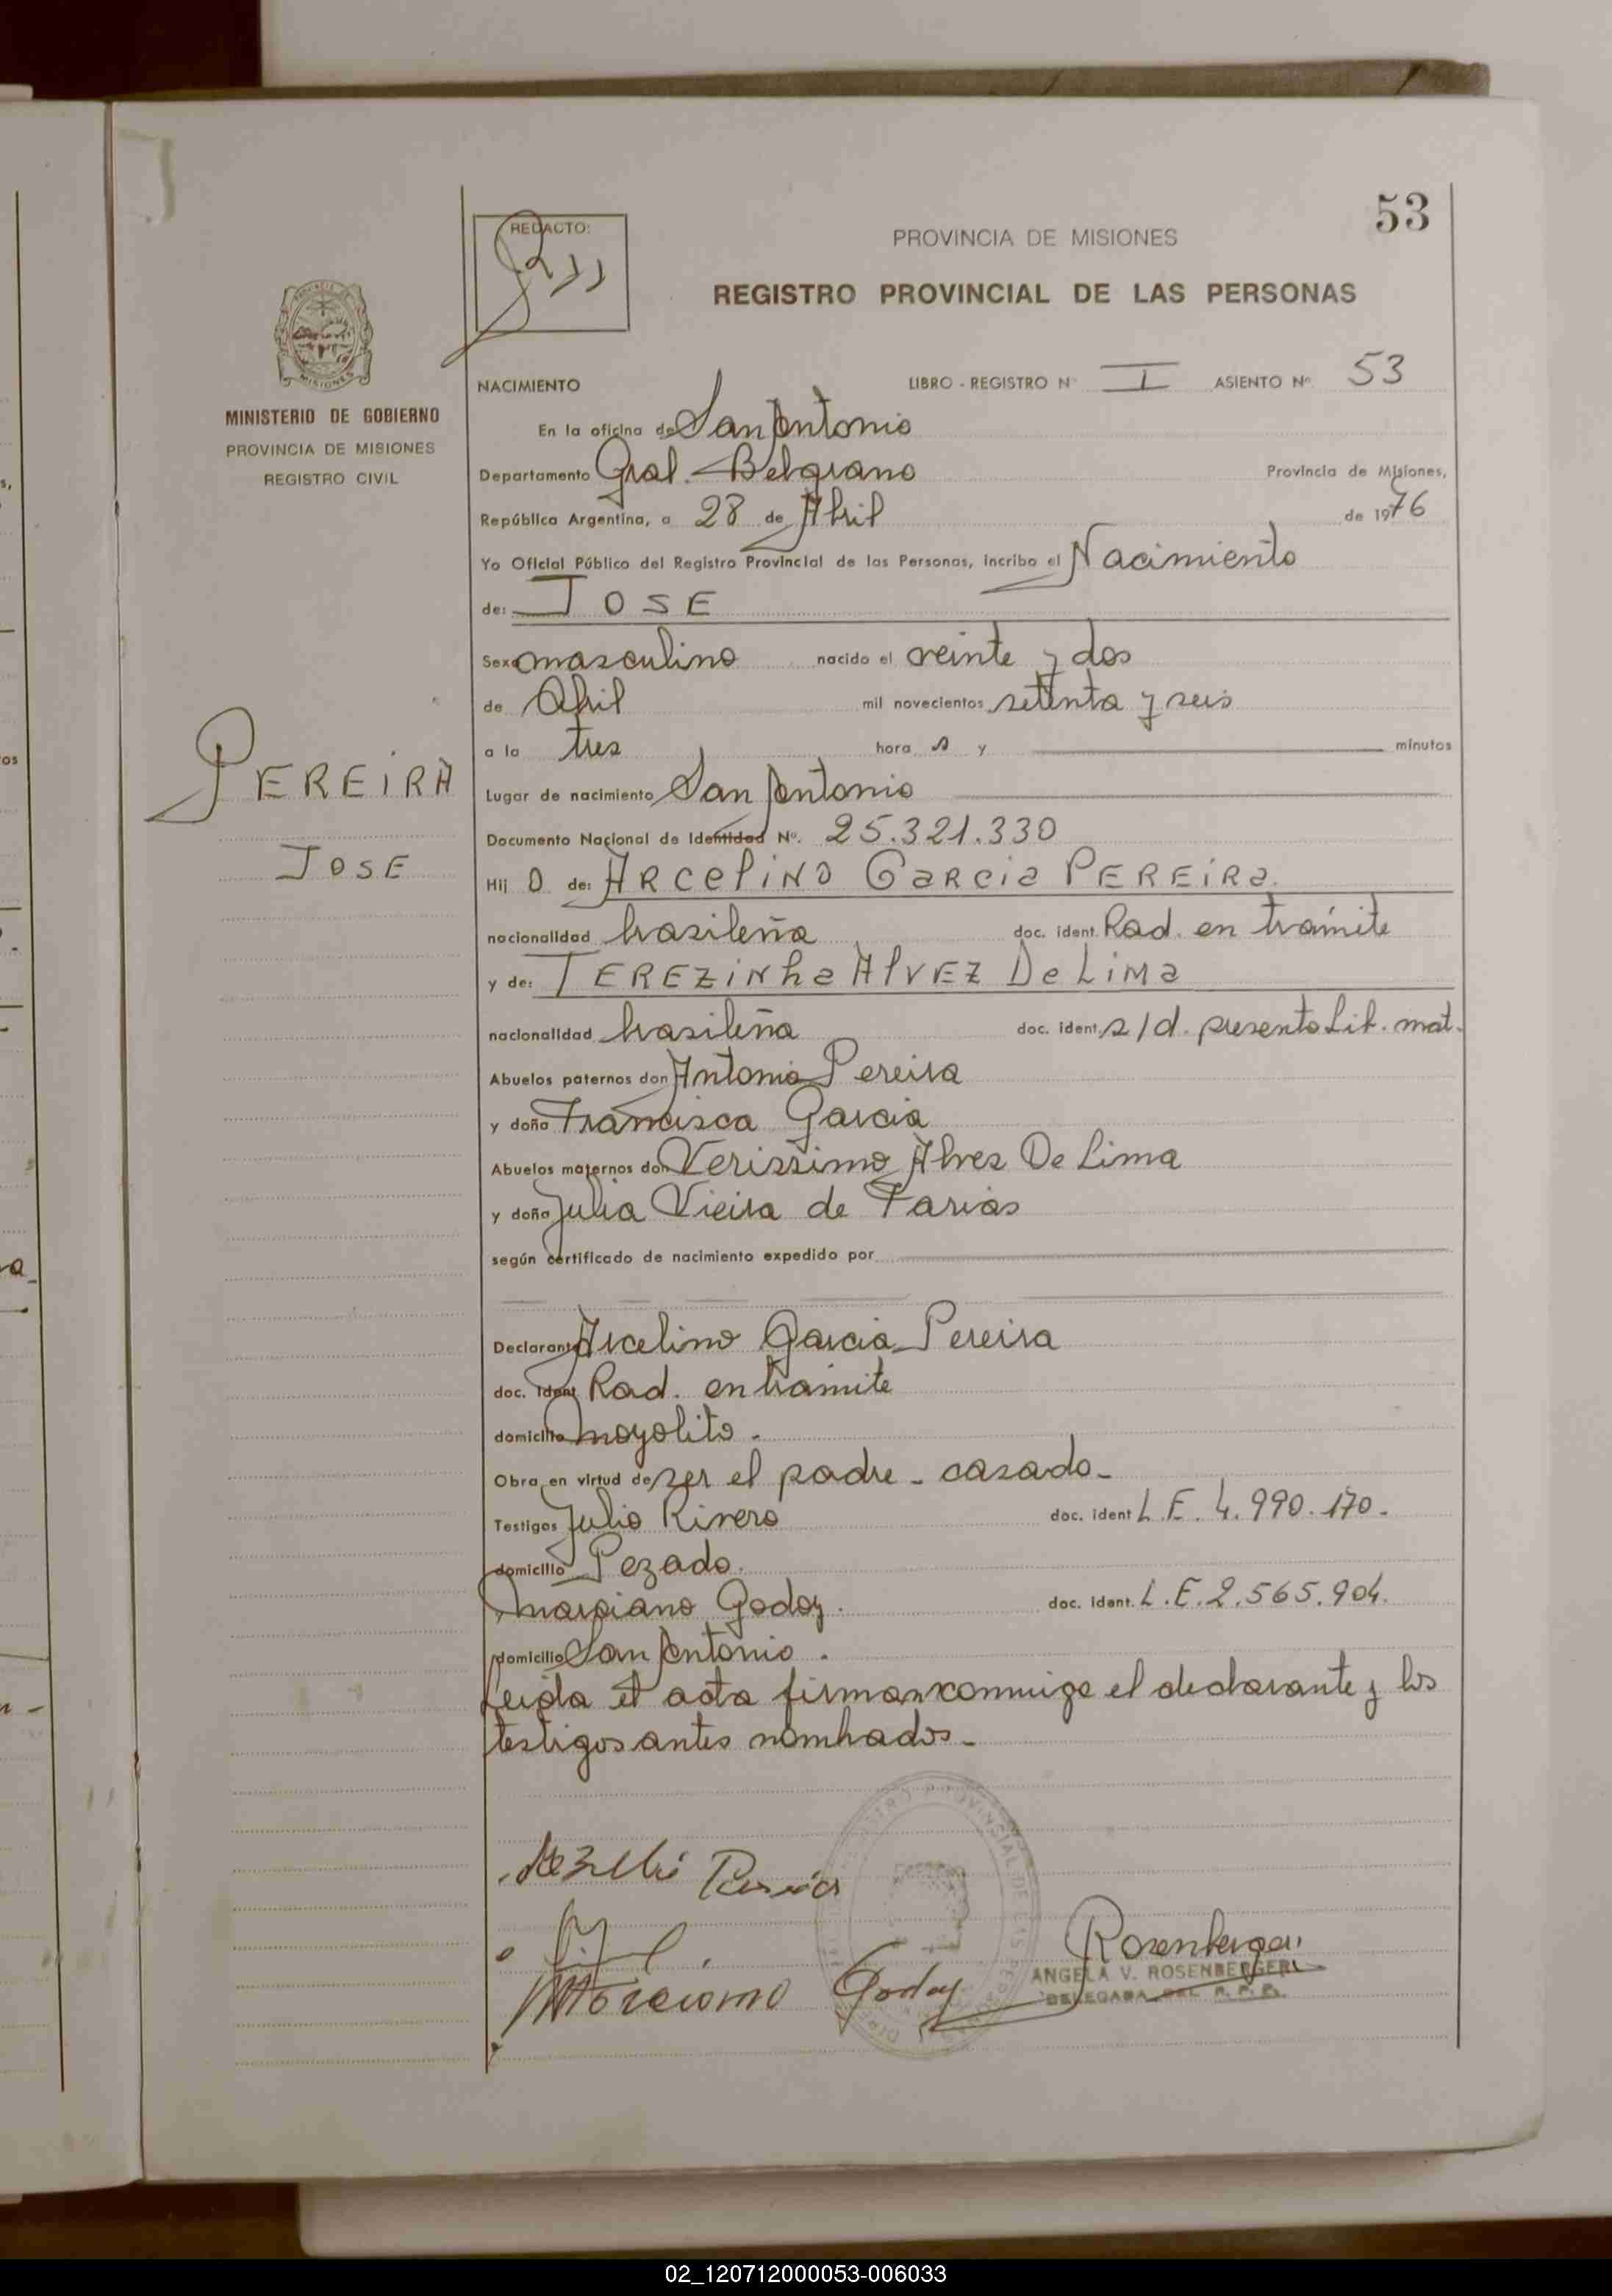 53
REDACTO:
PROVINCIA DE MISIONES
REGISTRO PROVINCIAL DE LAS PERSONAS
MINISTERIO DE GOBIERNO
PROVINCIA DE MISIONES
REGISTRO CIVIL
NACIMIENTO LIBRO - REGISTRO Nº I ASIENTO Nº 53
En la oficina de San Antonio
Departamento Gral. Belgrano Provincia de Misiones,
República Argentina, a 28 de Abril de 1976
Yo Oficial Público del Registro Provincial de las Personas, inscribo el Nacimiento
de: JOSE
Sexo masculino nacido el veinte y dos
de Abril mil novecientos setenta y seis
a la tres hora s y minutos
PEREIRA
Lugar de nacimiento San Antonio
Documento Nacional de Identidad Nº. 25.321.330
JOSE
Hij o de: ARCELINO GARCIA PEREIRA.
nacionalidad brasileña doc. ident. Rad. en trámite
y de: TEREZINHA ALVEZ De LIMA
nacionalidad brasileña doc. ident. s/d. presento Lib. mat.
Abuelos paternos don Antonio Pereira
y doña Francisca Garcia
Abuelos maternos don Verissimo Alvez De Lima
y doña Julia Vieira de Farias
según certificado de nacimiento expedido por
Declarante Arcelino Garcia Pereira
doc. ident. Rad. en trámite
domicilio Moyolito.
Obra en virtud de ser el padre - casado-
Testigos Julio Rivero doc. ident L.E. 4.990.170.-
domicilio Pezado.
Marciano Godoy. doc. ident. L.E. 2.565.904.
domicilio San Antonio.
Leida el acta firman conmigo el declarante y los
testigos antes nombrados.-
Pereira
Marciano Godoy
Rosenberger
ANGELA V. ROSENBERGER
DELEGADA DEL R. P. P.
02_120712000053-006033